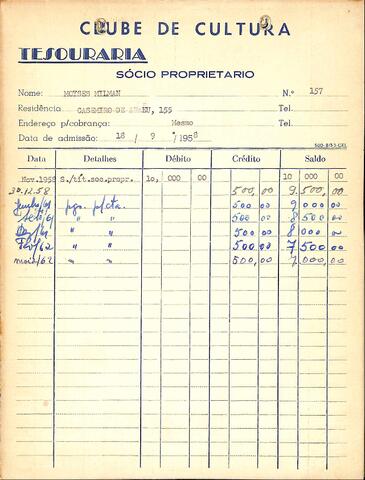 CLUBE DE CULTURA
TESOURARIA
SÓCIO PROPRIETARIO
Nome: MOYSES MILMAN N.º 157
Residência CASEMIRO DE ABREU, 155 Tel.
Endereço p/cobrança: Mesmo Tel.
Data de admissão: 18 / 9 / 1958
Data Detalhes Débito Crédito Saldo
Nov.1958 S./tit.soc.propr. 10, 000 00 10 000 00
30.12.58 500,00 9.500,00
Junho/61 pgo. p/cta. 500 00 9 000 00
Set/61 " " 500 00 8 500 00
Dez/61 " " 500 00 8 000 00
Fev/62 " " 500,00 7 500 00
maio/62 " " 500,00 7 000,00